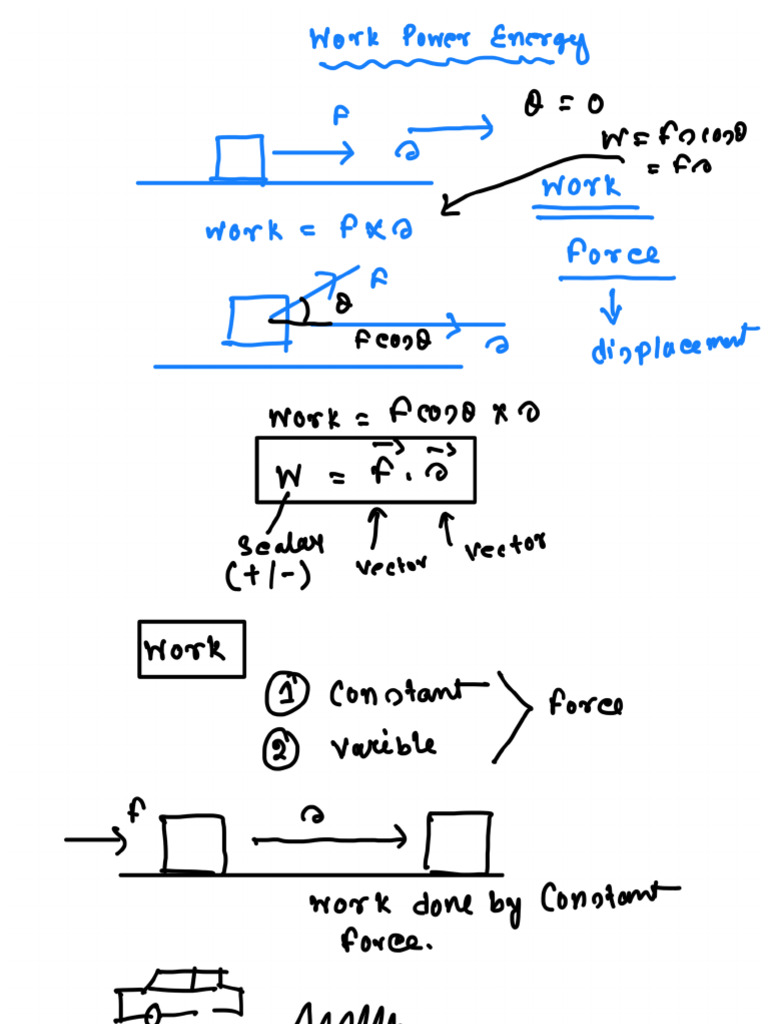 Work Power Energy
F s θ = 0
W = Fs cosθ
= Fs
Work
Work = F x s
Force
F
θ
F cosθ s
displacement
Work = F cosθ x s
W = F⃗ . s⃗
scalar vector vector
(+/-)
Work
1 Constant
Force
2 Varible
F s
Work done by Constant
force.